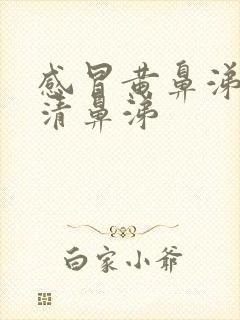 感冒黄鼻涕
清鼻涕
白家小爷